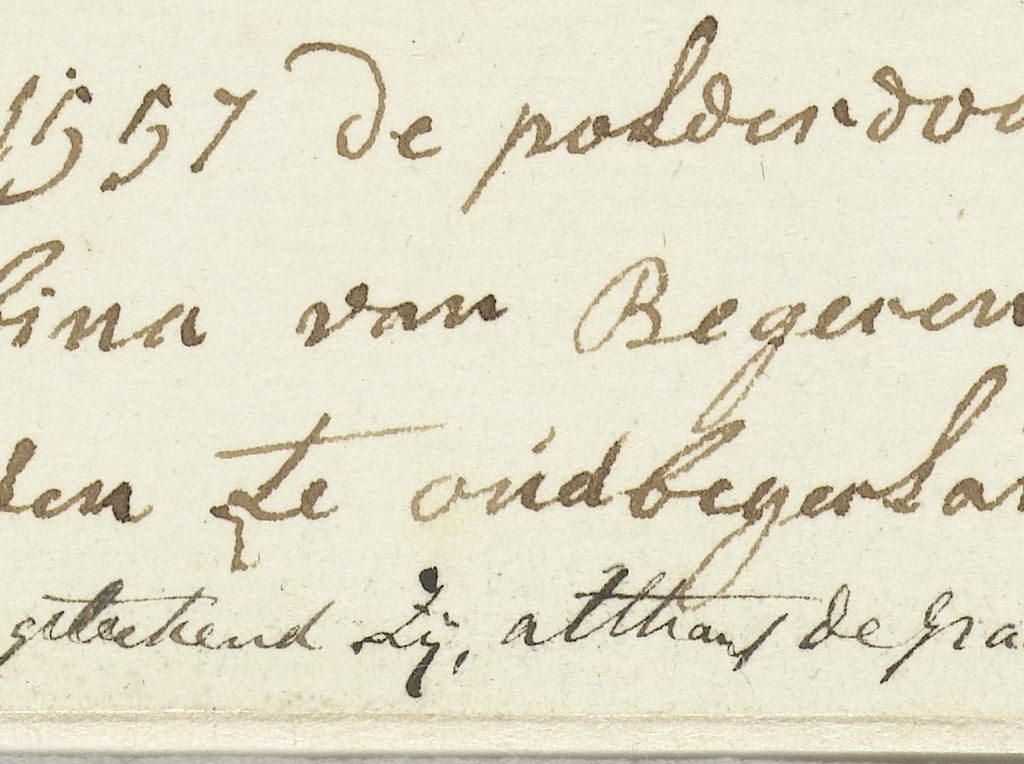 1557 de polder doo
bina van Begeren
den te oudbeyerlan
geteekend zij, althans de gra